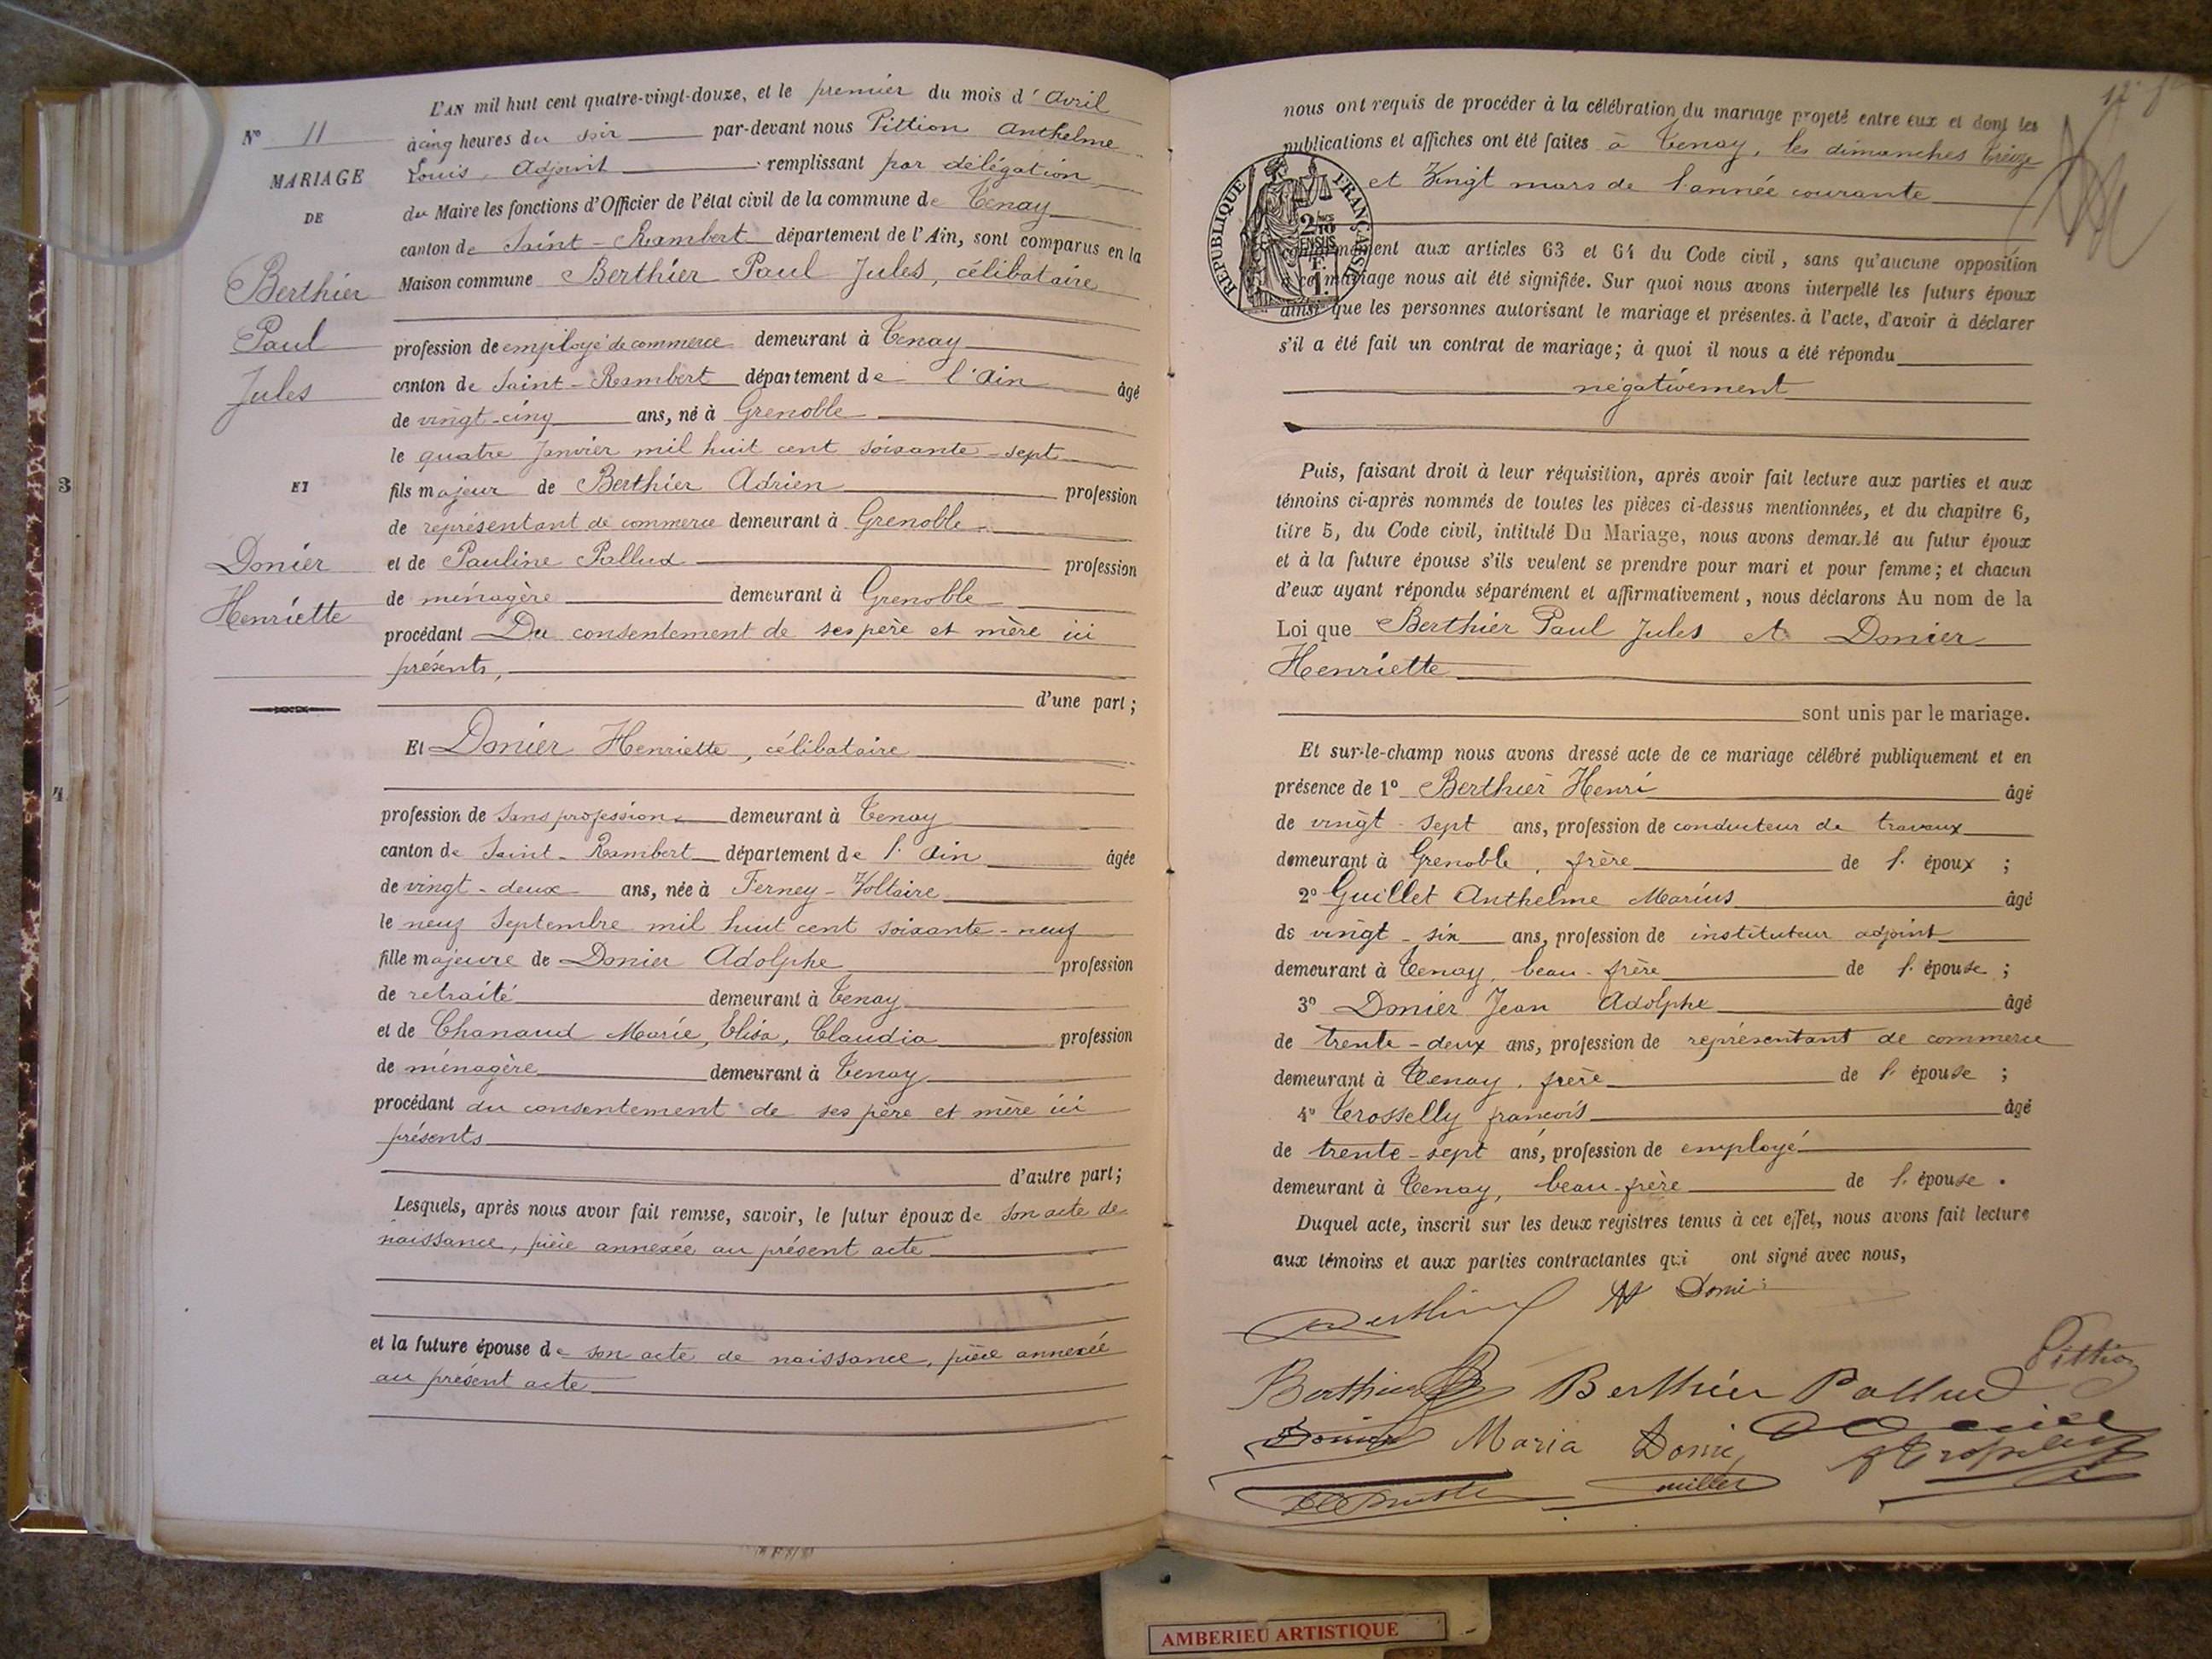 L'AN mil huit cent quatre-vingt-douze, et le premier du mois d'Avril
à cinq heures du soir par-devant nous Pittion Anthelme
Louis, Adjoint remplissant par délégation
du Maire les fonctions d'Officier de l'état civil de la commune de Tenay
canton de Saint-Rambert département de l'Ain, sont comparus en la
Maison commune Berthier Paul Jules, célibataire
profession de employé de commerce demeurant à Tenay
canton de Saint-Rambert département de l'Ain âgé
de vingt-cinq ans, né à Grenoble
le quatre Janvier mil huit cent soixante-sept
fils majeur de Berthier Adrien profession
de représentant de commerce demeurant à Grenoble
et de Pauline Pallud profession
de ménagère demeurant à Grenoble
procédant Du consentement de ses père et mère ici
présents,
d'une part;
Et Donier Henriette, célibataire
profession de Sans profession demeurant à Tenay
canton de Saint-Rambert département de l'Ain âgée
de vingt-deux ans, née à Ferney-Voltaire
le neuf Septembre mil huit cent soixante-neuf
fille majeure de Donier Adolphe profession
de retraité demeurant à Tenay
et de Chanaud Marie, Elisa, Claudia profession
de ménagère demeurant à Tenay
procédant du consentement de ses père et mère ici
présents
d'autre part;
Lesquels, après nous avoir fait remise, savoir, le futur époux de son acte de
naissance, pièce annexée au présent acte
et la future épouse de son acte de naissance, pièce annexée
au présent acte
N° 11
MARIAGE
DE
Berthier
Paul
Jules
ET
Donier
Henriette
3
4
nous ont requis de procéder à la célébration du mariage projeté entre eux et dont les
publications et affiches ont été faites à Tenay, les dimanches treize
et Vingt mars de l'année courante
RÉPUBLIQUE FRANÇAISE
2/10
EN SUS
1 F.
conformément aux articles 63 et 64 du Code civil, sans qu'aucune opposition
à ce mariage nous ait été signifiée. Sur quoi nous avons interpellé les futurs époux
ainsi que les personnes autorisant le mariage et présentes à l'acte, d'avoir à déclarer
s'il a été fait un contrat de mariage; à quoi il nous a été répondu
négativement
Puis, faisant droit à leur réquisition, après avoir fait lecture aux parties et aux
témoins ci-après nommés de toutes les pièces ci-dessus mentionnées, et du chapitre 6,
titre 5, du Code civil, intitulé Du Mariage, nous avons demandé au futur époux
et à la future épouse s'ils veulent se prendre pour mari et pour femme; et chacun
d'eux ayant répondu séparément et affirmativement, nous déclarons Au nom de la
Loi que Berthier Paul Jules et Donier
Henriette
sont unis par le mariage.
Et sur-le-champ nous avons dressé acte de ce mariage célébré publiquement et en
présence de 1° Berthier Henri âgé
de vingt-sept ans, profession de conducteur de travaux
demeurant à Grenoble, frère de l'époux ;
2° Guillet Anthelme Marius âgé
de vingt-six ans, profession de instituteur adjoint
demeurant à Tenay, beau-frère de l'épouse ;
3° Donier Jean Adolphe âgé
de trente-deux ans, profession de représentant de commerce
demeurant à Tenay, frère de l'épouse ;
4° Trosselly françois âgé
de trente-sept ans, profession de employé
demeurant à Tenay, beau-frère de l'épouse.
Duquel acte, inscrit sur les deux registres tenus à cet effet, nous avons fait lecture
aux témoins et aux parties contractantes qui ont signé avec nous,
Berthier H Donier
Pittion
Berthier Berthier Pallud
Donier Maria Donier
AMBERIEU ARTISTIQUE